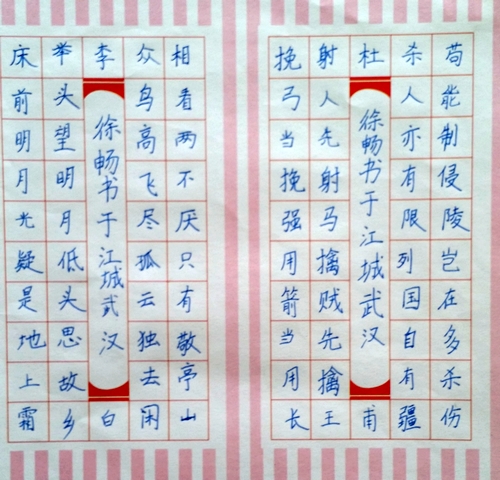 床前明月光疑是地上霜
举头望明月低头思故乡
李白
徐畅书于江城武汉
众鸟高飞尽孤云独去闲
相看两不厌只有敬亭山
挽弓当挽强用箭当用长
射人先射马擒贼先擒王
杜甫
徐畅书于江城武汉
杀人亦有限列国自有疆
苟能制侵陵岂在多杀伤